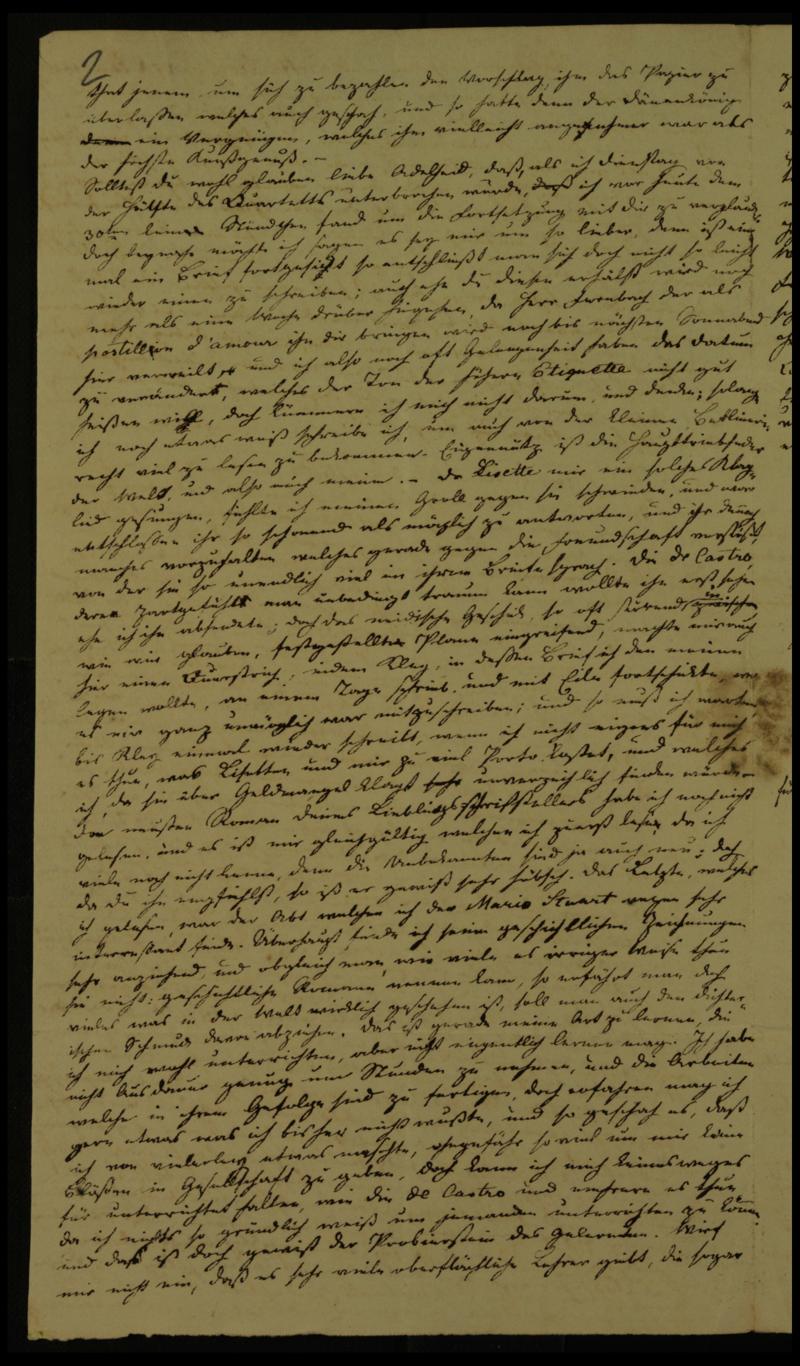 2
that jenem um sich zu bezahlen den Vorschlag, ihm das Papier zu
überlassen welches auch geschah, und so hatte denn der Dänenkönig
ein Vergnügen, welches ihm vielleicht angenehmer war als
der höchste Kunstgenuß. –
Solltest du wohl glauben liebe Adelheid, daß, als ich Dienstag von
der Hälfte des Quartetts unterbrochen wurde, ich vor heute dem
30ten keine Stündchen fand um die Fortsetzung mit dir zu verplaud
doch beynahe möchte ich sagen es sey mir um so lieber, denn ist ein
mal ein Brief fortgeschickt so entschließt man sich doch nicht so leicht
wieder einen zu schreiben; auch ehe du diesen erhälst wird noch
mehr als eine Woche drüber hingehen, da Herr der als
postillion d'amour ihn dir bringen wird noch bis nächsten Sonnabend
hier verweilt, und ich also noch oft Gelegenheit habe das Datum
zu verändern, welches der Ton der höhern Etiquette nicht gut
heißen will, doch kümmere ich mich nicht darum, und denke; solang
ich noch etwas weiß schreibe ich, um auch von der kleinen
recht viel zu lesen zu bekommen. Eigennutz ist die Haupttriebfeder
der Welt, und also auch meine. – Da Lisette mir ein solches Klag-
lied gesungen, fühlte ich meinen Groll gegen sie schwinden, und war
entschlossen ihr so schonend als möglich zu antworten, und ihr
manches vorzuhalten welches gerade gegen die Freundschaft verstößt
von der sie so unendlich viel in ihrem Briefe sprach. Die de Castro,
deren Zartgefühl man unbedingt trauen kann wollte ihn erst sehen
ehe ich ihn absendete; doch das neidische Geschick, so oft störend in
wie wir glauben, festgestellte Plane eingreifend, machte mir auch
hier einen Querstrich, indem Kley, in dessen Brief ich den meinen
legen wollte, an einem Tage schrieb, und mit Eile fortschickte, wo
es mir ganz unmöglich war mitzuschreiben; und so muß ich warten
bis Kley einmal wieder schreibt, wenn ich nicht eigens für mich
es thue, was Lisetten und mir zu viel Porto kostet, und welches
ich, da sie über Geldmangel klagt unverzeihlich finden würde.
Den neusten Roman deines Lieblingsschriftstellers habe ich noch nicht
gelesen, und es ist mir gleichgültig welchen ich zuerst lese, da ich
viele noch nicht kenne, denn die Unbekannten sind ja auch neu; doch
da du ihn empfiehlst, so ist er gewiß sehr hübsch. Das Letzte, welches
ich gelesen, war der Abt welchen ich der Maria Stuart wegen sehr
interressant finde. Überhaupt, finde ich seine geschichtlichen Zeichnungen
sehr anziehend, und obgleich man, wie viele es irriger Weise thun
sie nicht: geschichtliche Romane nennen kann, so erfährt man doch
vieles was in der Welt wirklich geschehen ist, soll man auch den dichter-
ischen Schmuck davon abziehen. Das ist gerade meine Art zu lernen, die
ich mich wohl unterrichten, aber nicht eigentlich lernen mag. Ich habe
nicht Ausdauer genug um Stunden zu nehmen, und die Arbeiten
welche in ihrem Gefolge sind zu fertigen, doch erfahren mag ich
gern etwas was ich bisher nicht wußte, und so geschah es, daß
ich von vielerley etwas naschte, ohngefähr so viel um mir keine
Blößen in Gesellschaft zu geben, doch kann ich mich keinesweges
für unterrichtet halten, wie die de Castro und mehrere es thun
da ich nichts so gründlich weiß um jemanden unterrichten zu können
und das ist doch gewiß der Probierstein des Gelernten. Wirf
mir nicht ein, daß es sehr viele oberflächliche Lehrer giebt, die sogar